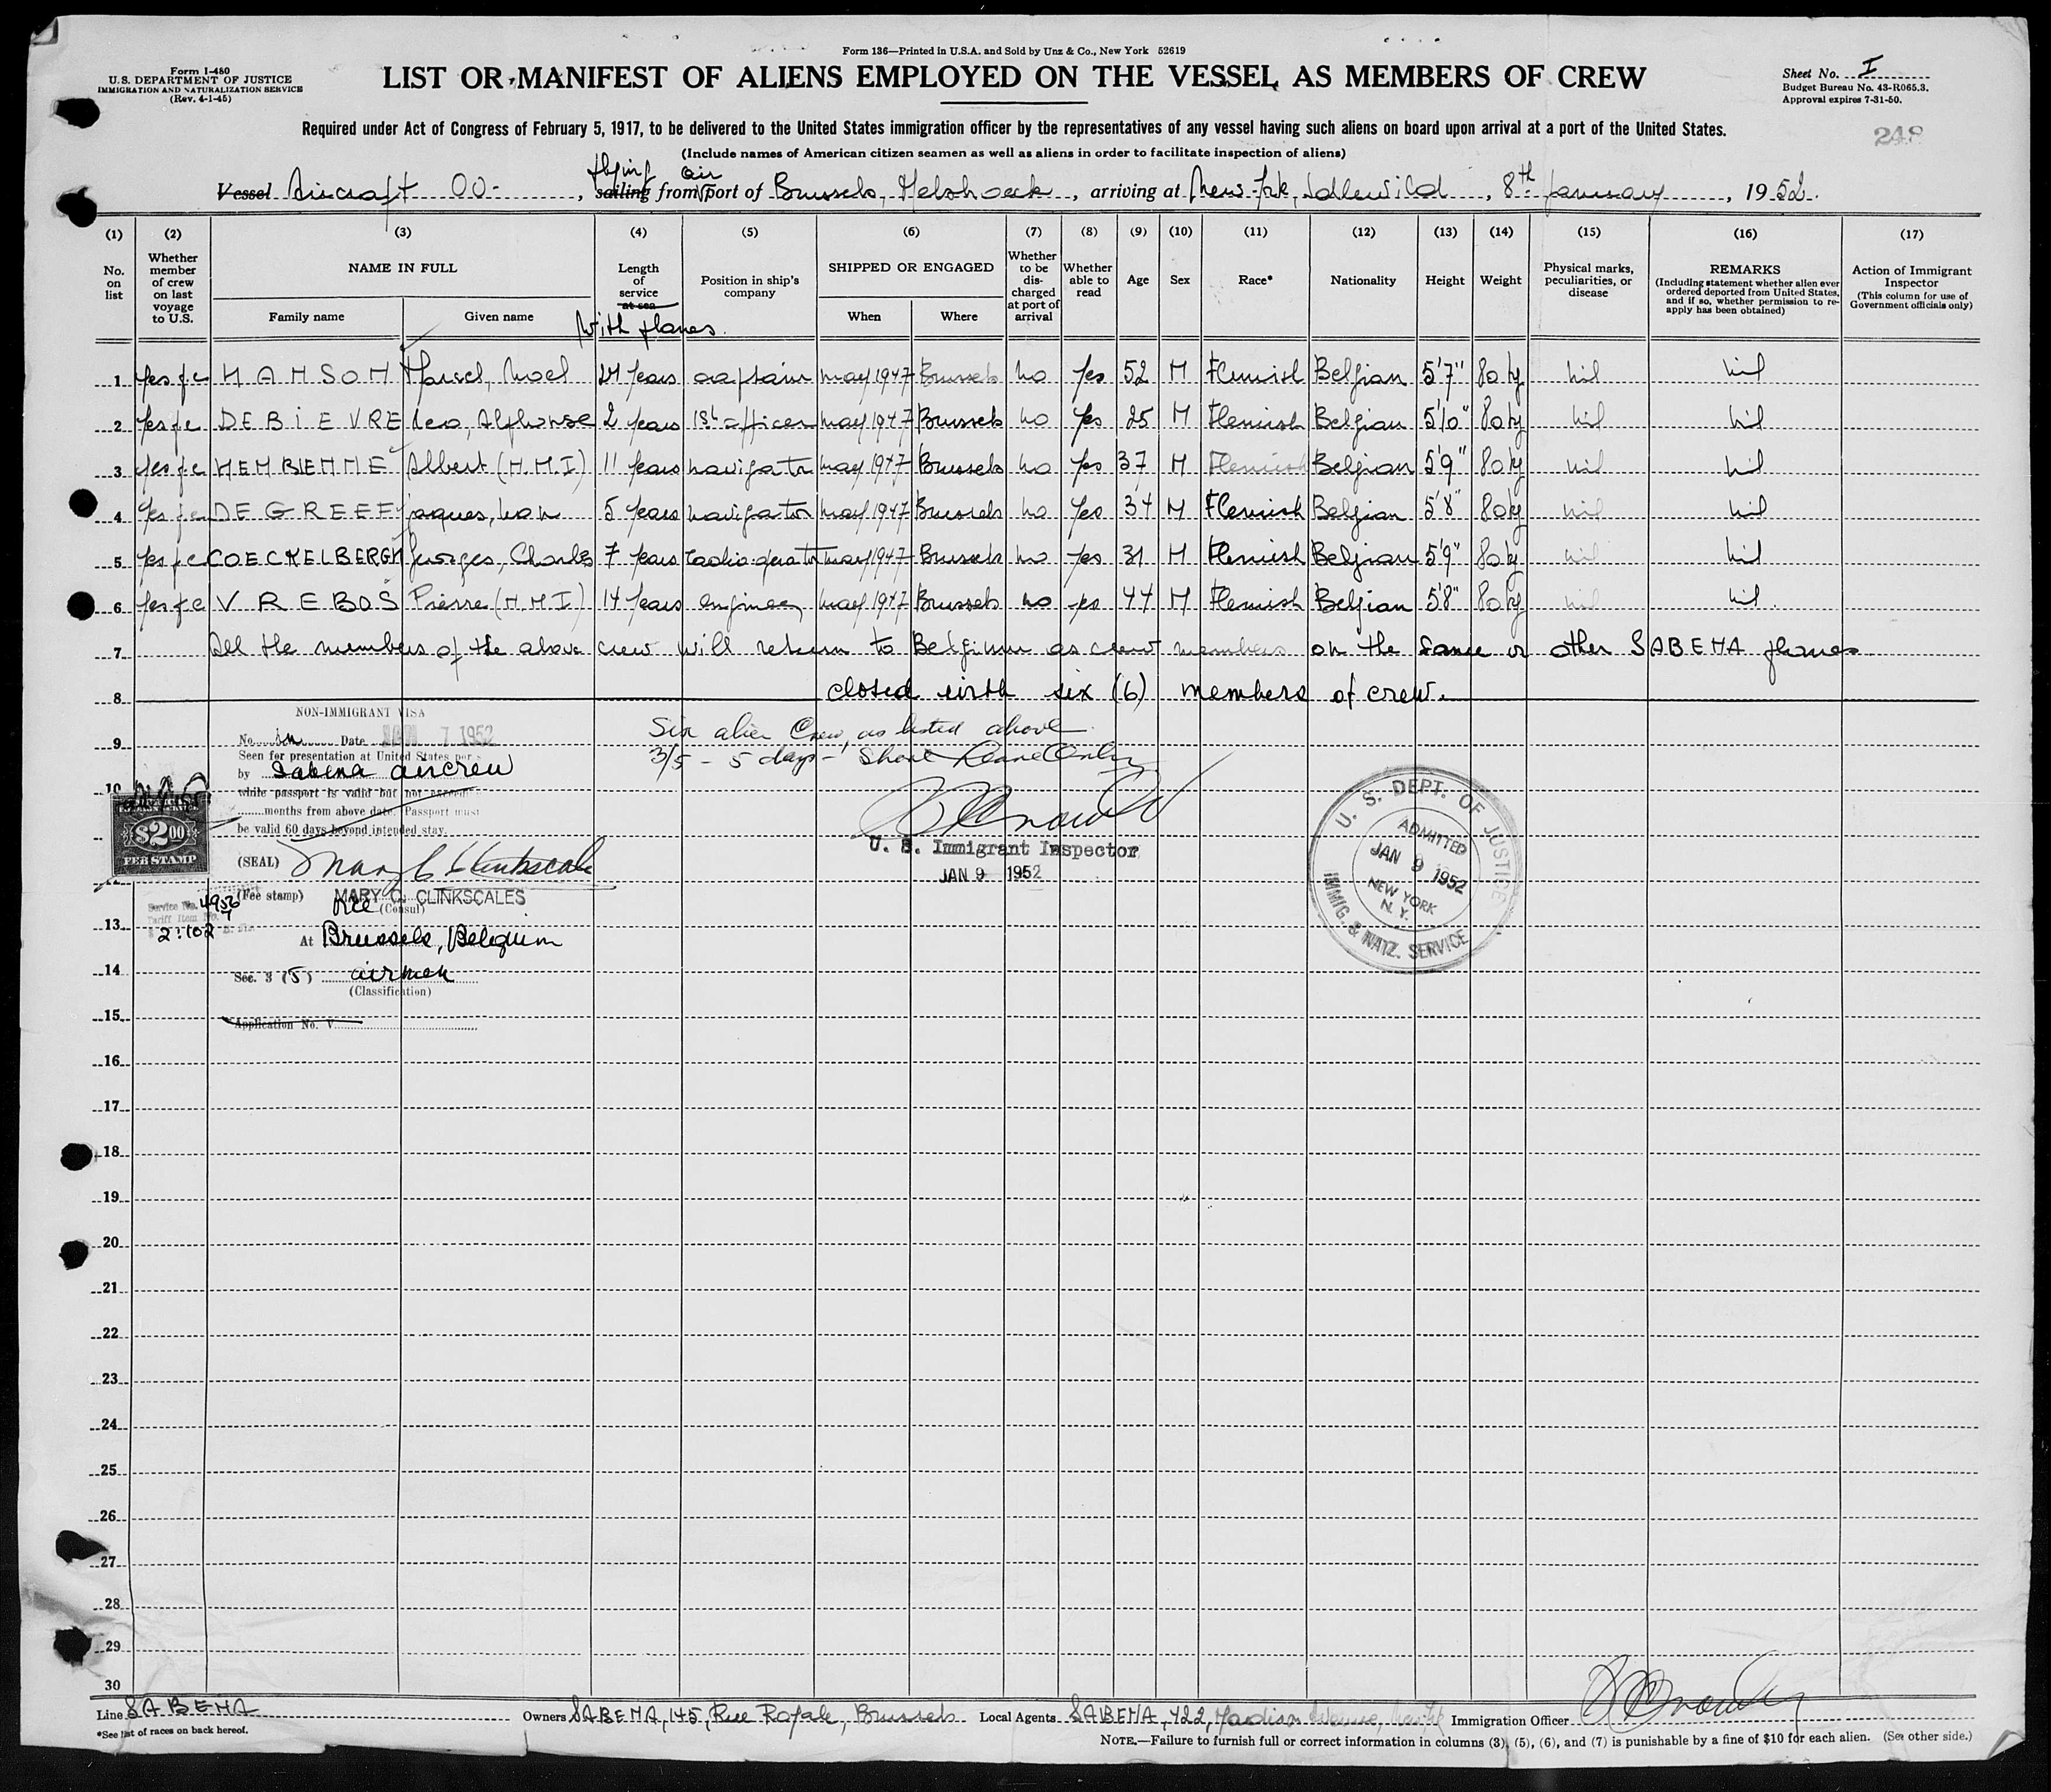 Form 136—Printed in U.S.A. and Sold by Unz & Co., New York 52619
Form I-480
U.S. DEPARTMENT OF JUSTICE
IMMIGRATION AND NATURALIZATION SERVICE
(Rev. 4-1-45)
LIST OR MANIFEST OF ALIENS EMPLOYED ON THE VESSEL AS MEMBERS OF CREW
Sheet No. I
Budget Bureau No. 43-R065.3.
Approval expires 7-31-50.
248
Required under Act of Congress of February 5, 1917, to be delivered to the United States immigration officer by the representatives of any vessel having such aliens on board upon arrival at a port of the United States.
(Include names of American citizen seamen as well as aliens in order to facilitate inspection of aliens)
flying air
Vessel Aircraft OO- , sailing from port of Brussels, Melsbroeck , arriving at New-York, Idlewild , 8th January , 1952.
(1) (2) (3) (4) (5) (6) (7) (8) (9) (10) (11) (12) (13) (14) (15) (16) (17)
No. on list
Whether member of crew on last voyage to U.S.
NAME IN FULL
Family name
Given name
Length of service at sea
with planes
Position in ship's company
SHIPPED OR ENGAGED
When
Where
Whether to be discharged at port of arrival
Whether able to read
Age
Sex
Race*
Nationality
Height
Weight
Physical marks, peculiarities, or disease
REMARKS
(Including statement whether alien ever ordered deported from United States, and if so, whether permission to reapply has been obtained)
Action of Immigrant Inspector
(This column for use of Government officials only)
1 yes f.c HANSON Marcel, Noel 24 years captain may 1947 Brussels no yes 52 M Flemish Belgian 5'7" 80 kg nil nil
2 yes f.c DEBIEVRE Leo, Alphonse 2 years 1st officer may 1947 Brussels no yes 25 M Flemish Belgian 5'10" 80 kg nil nil
3 yes f.c HENBIENNE Albert (N.M.I) 11 years navigator may 1947 Brussels no yes 37 M Flemish Belgian 5'9" 80 kg nil nil
4 yes f.c DEGREEF jaques, 5 years navigator may 1947 Brussels no yes 34 M Flemish Belgian 5'8" 80 kg nil nil
5 yes f.c COECKELBERGH Georges, Charles 7 years radio-operator may 1947 Brussels no yes 31 M Flemish Belgian 5'9" 80 kg nil nil
6 yes f.c VREBOS Pierre (N.M.I) 14 years engineer may 1947 Brussels no yes 44 M Flemish Belgian 5'8" 80 kg nil nil
7 All the members of the above crew will return to Belgium as crew members on the same or other SABENA planes
8 closed with six (6) members of crew.
NON-IMMIGRANT VISA
No. Date JAN 7 1952
Seen for presentation at United States ports
by Sabena aircrew
while passport is valid but not exceeding
months from above date. Passport must
be valid 60 days beyond intended stay.
(SEAL) Mary C Clinkscales
$2.00
FEE STAMP
(Fee stamp) MARY C. CLINKSCALES
Vice (Consul)
Service No. 4956
Tariff Item No. 7
2:102
At Brussels, Belgium
Sec. 3 (5) airmen
(Classification)
Application No. V
Six alien Crew, as listed above
3/5 - 5 days - Shore Leave Only
U. S. Immigrant Inspector
JAN 9 1952
U. S. DEPT. OF JUSTICE
ADMITTED
JAN 9 1952
NEW YORK
N. Y.
IMMIG. & NATZ. SERVICE
9
10
11
12
13
14
15
16
17
18
19
20
21
22
23
24
25
26
27
28
29
30
Line SABENA
Owners SABENA, 145, Rue Royale, Brussels
Local Agents SABENA, 422, Madison Avenue,
Immigration Officer
*See list of races on back hereof.
NOTE.—Failure to furnish full or correct information in columns (3), (5), (6), and (7) is punishable by a fine of $10 for each alien. (See other side.)